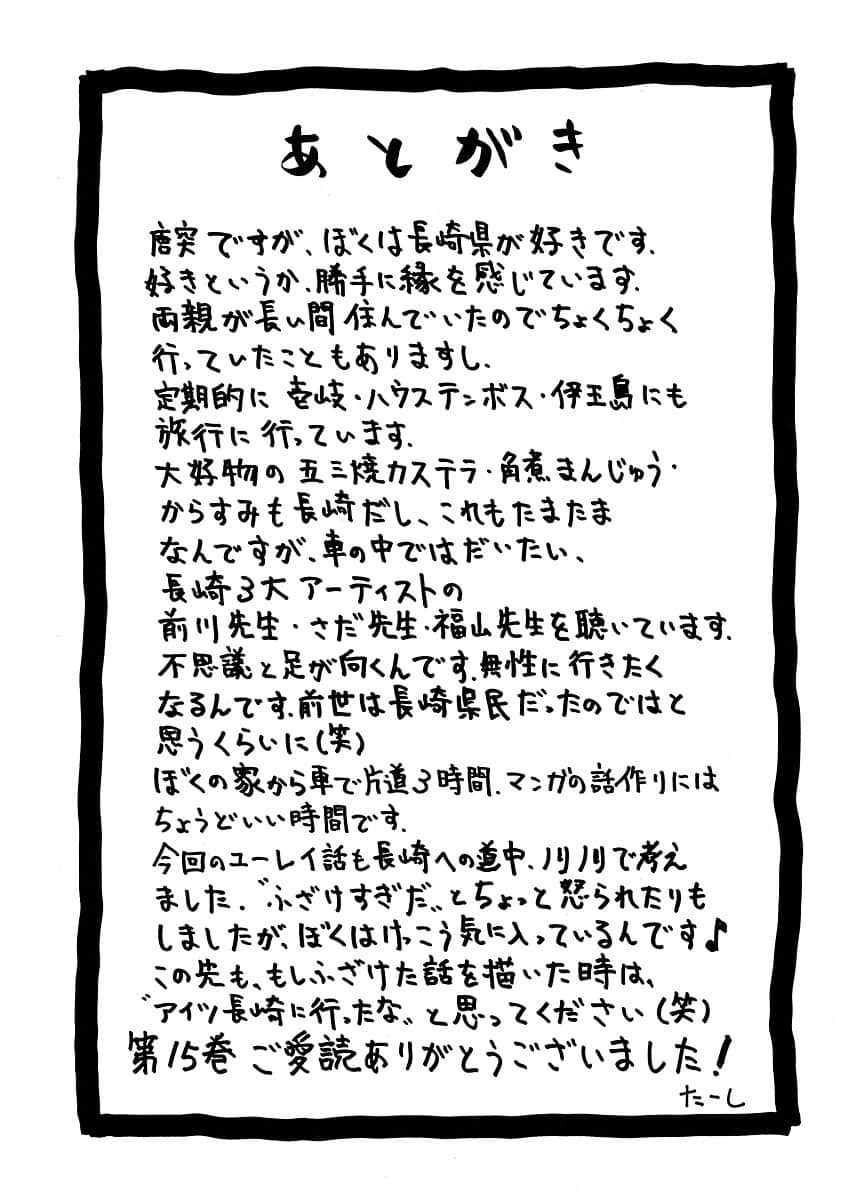 あとがき
唐突ですが、ぼくは長崎県が好きです.
好きというか、勝手に縁を感じています.
両親が長い間住んでいたのでちょくちょく
行っていたこともありますし、
定期的に 壱岐・ハウステンボス・伊王島にも
旅行に行っています.
大好物の五三焼カステラ・角煮まんじゅう・
からすみも長崎だし、これもたまたま
なんですが、車の中ではだいたい、
長崎3大アーティストの
前川先生・さだ先生・福山先生を聴いています.
不思議と足が向くんです.無性に行きたく
なるんです.前世は長崎県民だったのではと
思うくらいに(笑)
ぼくの家から車で片道3時間.マンガの話作りには
ちょうどいい時間です.
今回のユーレイ話も長崎への道中、ノリノリで考え
ました.〝ふざけすぎだ〟とちょっと怒られたりも
しましたが、ぼくはけっこう気に入っているんです♪
この先も、もしふざけた話を描いた時は、
〝アイツ長崎に行ったな〟と思ってください(笑)
第15巻 ご愛読ありがとうございました!
たーし